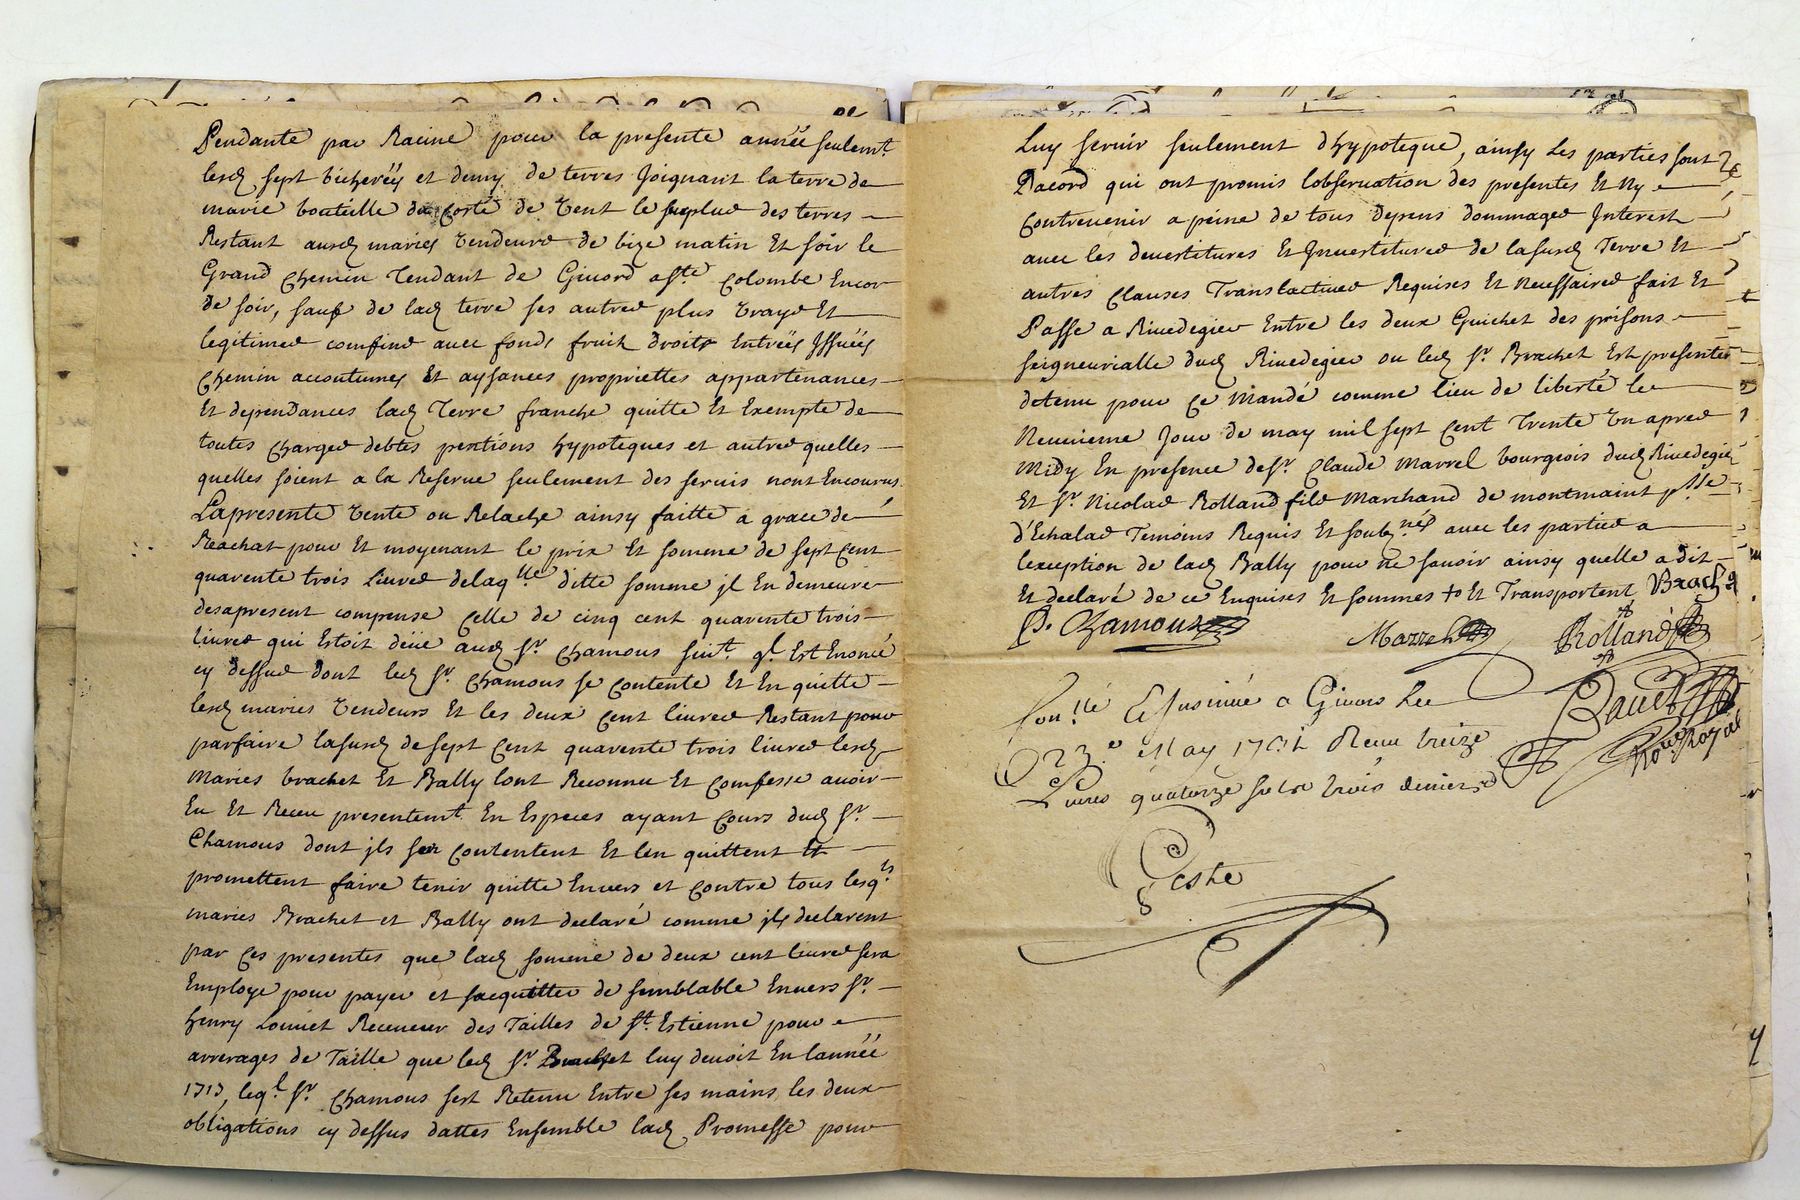 Pendante par Racine pour la presente année seulemt.
lesd. sept bicherées et demy de terres Joignant la terre de
marie bouteille du Costé de Vent le surplus des terres
Restant ausd. mariés Vendeurs de bize matin Et soir le
Grand Chemin Tendant de Givord a Ste. Colombe Encor
de soir, sauf de lad. terre ses autres plus Vrays Et
legitimes confins avec fonds fruits droits Entrées Issuées
Chemin accoutumes Et aysances propriettes appartenances
Et dependances lad. Terre franche quitte Et Exempte de
toutes Charges debtes pentions hypoteques et autres quelles
quelles soient a la Reserve seulement des servis nont Encourus
La presente Vente ou Relache ainsy faitte a grace de
Reachat pour Et moyenant le prix Et somme de sept Cent
quarente trois Livres de laqlle ditte somme il En demeure
desapresent compense Celle de Cinq Cent quarente trois
livres qui Estoit düe aud. Sr. Chamous suivt. ql. Est Enoncé
cy dessus dont led. Sr. Chamous se Contente Et En quitte
lesd. maries Vendeurs Et les deux Cent livres Restant pour
parfaire lasusd. de sept Cent quarente trois livres lesd.
Maries brachet Et Bally lont Reconnu Et Confesse avoir
Eu Et Receu presentemt. En Especes ayant Cours dud. Sr.
Chamous dont ils sen Contentent Et len quittent Et
promettent faire tenir quitte Envers et Contre tous lesqls
maries Brachet et Bally ont declaré comme ils declarent
par Ces presentes que lad. somme de deux cent livres sera
Employe pour payer et sacquitter de semblable Envers Sr.
henry Louvet Receveur des Tailles de St. Estienne pour
arrerages de Taille que led. Sr. Brachet luy devoit En lannée
leql. Sr. Chamous sest Retenu Entre ses mains les deux
obligations cy dessus dattes Ensemble lad. Promesse pour
Luy servir seulement dhypoteque, ainsy les parties sont
Dacord qui ont promis lobservation des presentes Et Ny
Contrevenir a peine de tous depens dommages Interest
avec les devestitures Et Investitures de lasusd. Terre Et
autres Clauses Translatives Requises Et Necessaires fait Et
Passe a Rivedegier Entre les deux Guichet des prisons
seigneurialle dud. Rivedegier ou led. Sr. Brachet Est presenter
détenu pour Ce Mandé comme lieu de liberté le
Neuvieme Jour de may mil sept Cent Trente Un apres
Midy En presence de Sr. Claude Marrel bourgeois dud. Rivedegier
Et Sr. Nicolas Rolland fils Marchand de montmaint psse
d'Echalas Temoins Requis Et soubznés avec les parties a
lexeption de lad. Bally pour ne savoir ainsy quelle a dit
Et declaré de ce Enquises Et sommes Et Transportent Brachet
P. Chamous Marrel Rolland
Conllé Et Insinué a Givors Le
23e May 1731 Receu treize
Livres quatorze sols trois deniers